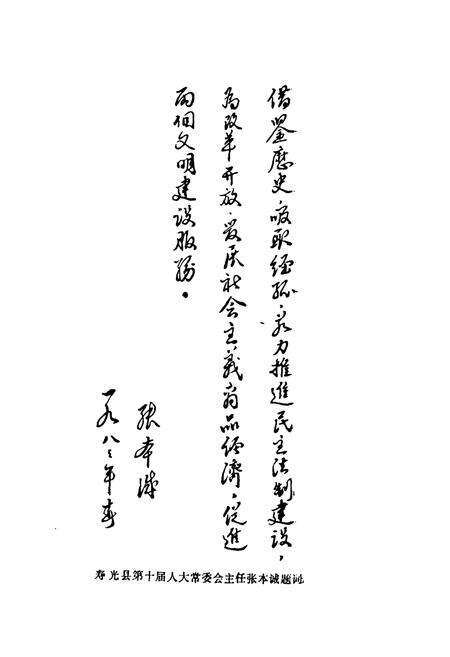 借鉴歷史，吸取经验，努力推進民主法制建设，
为改革开放，发展社会主义商品经濟，促進
两個文明建设服務。
张本诚
一九八八年春
寿光县第十届人大常委会主任张本诚题词